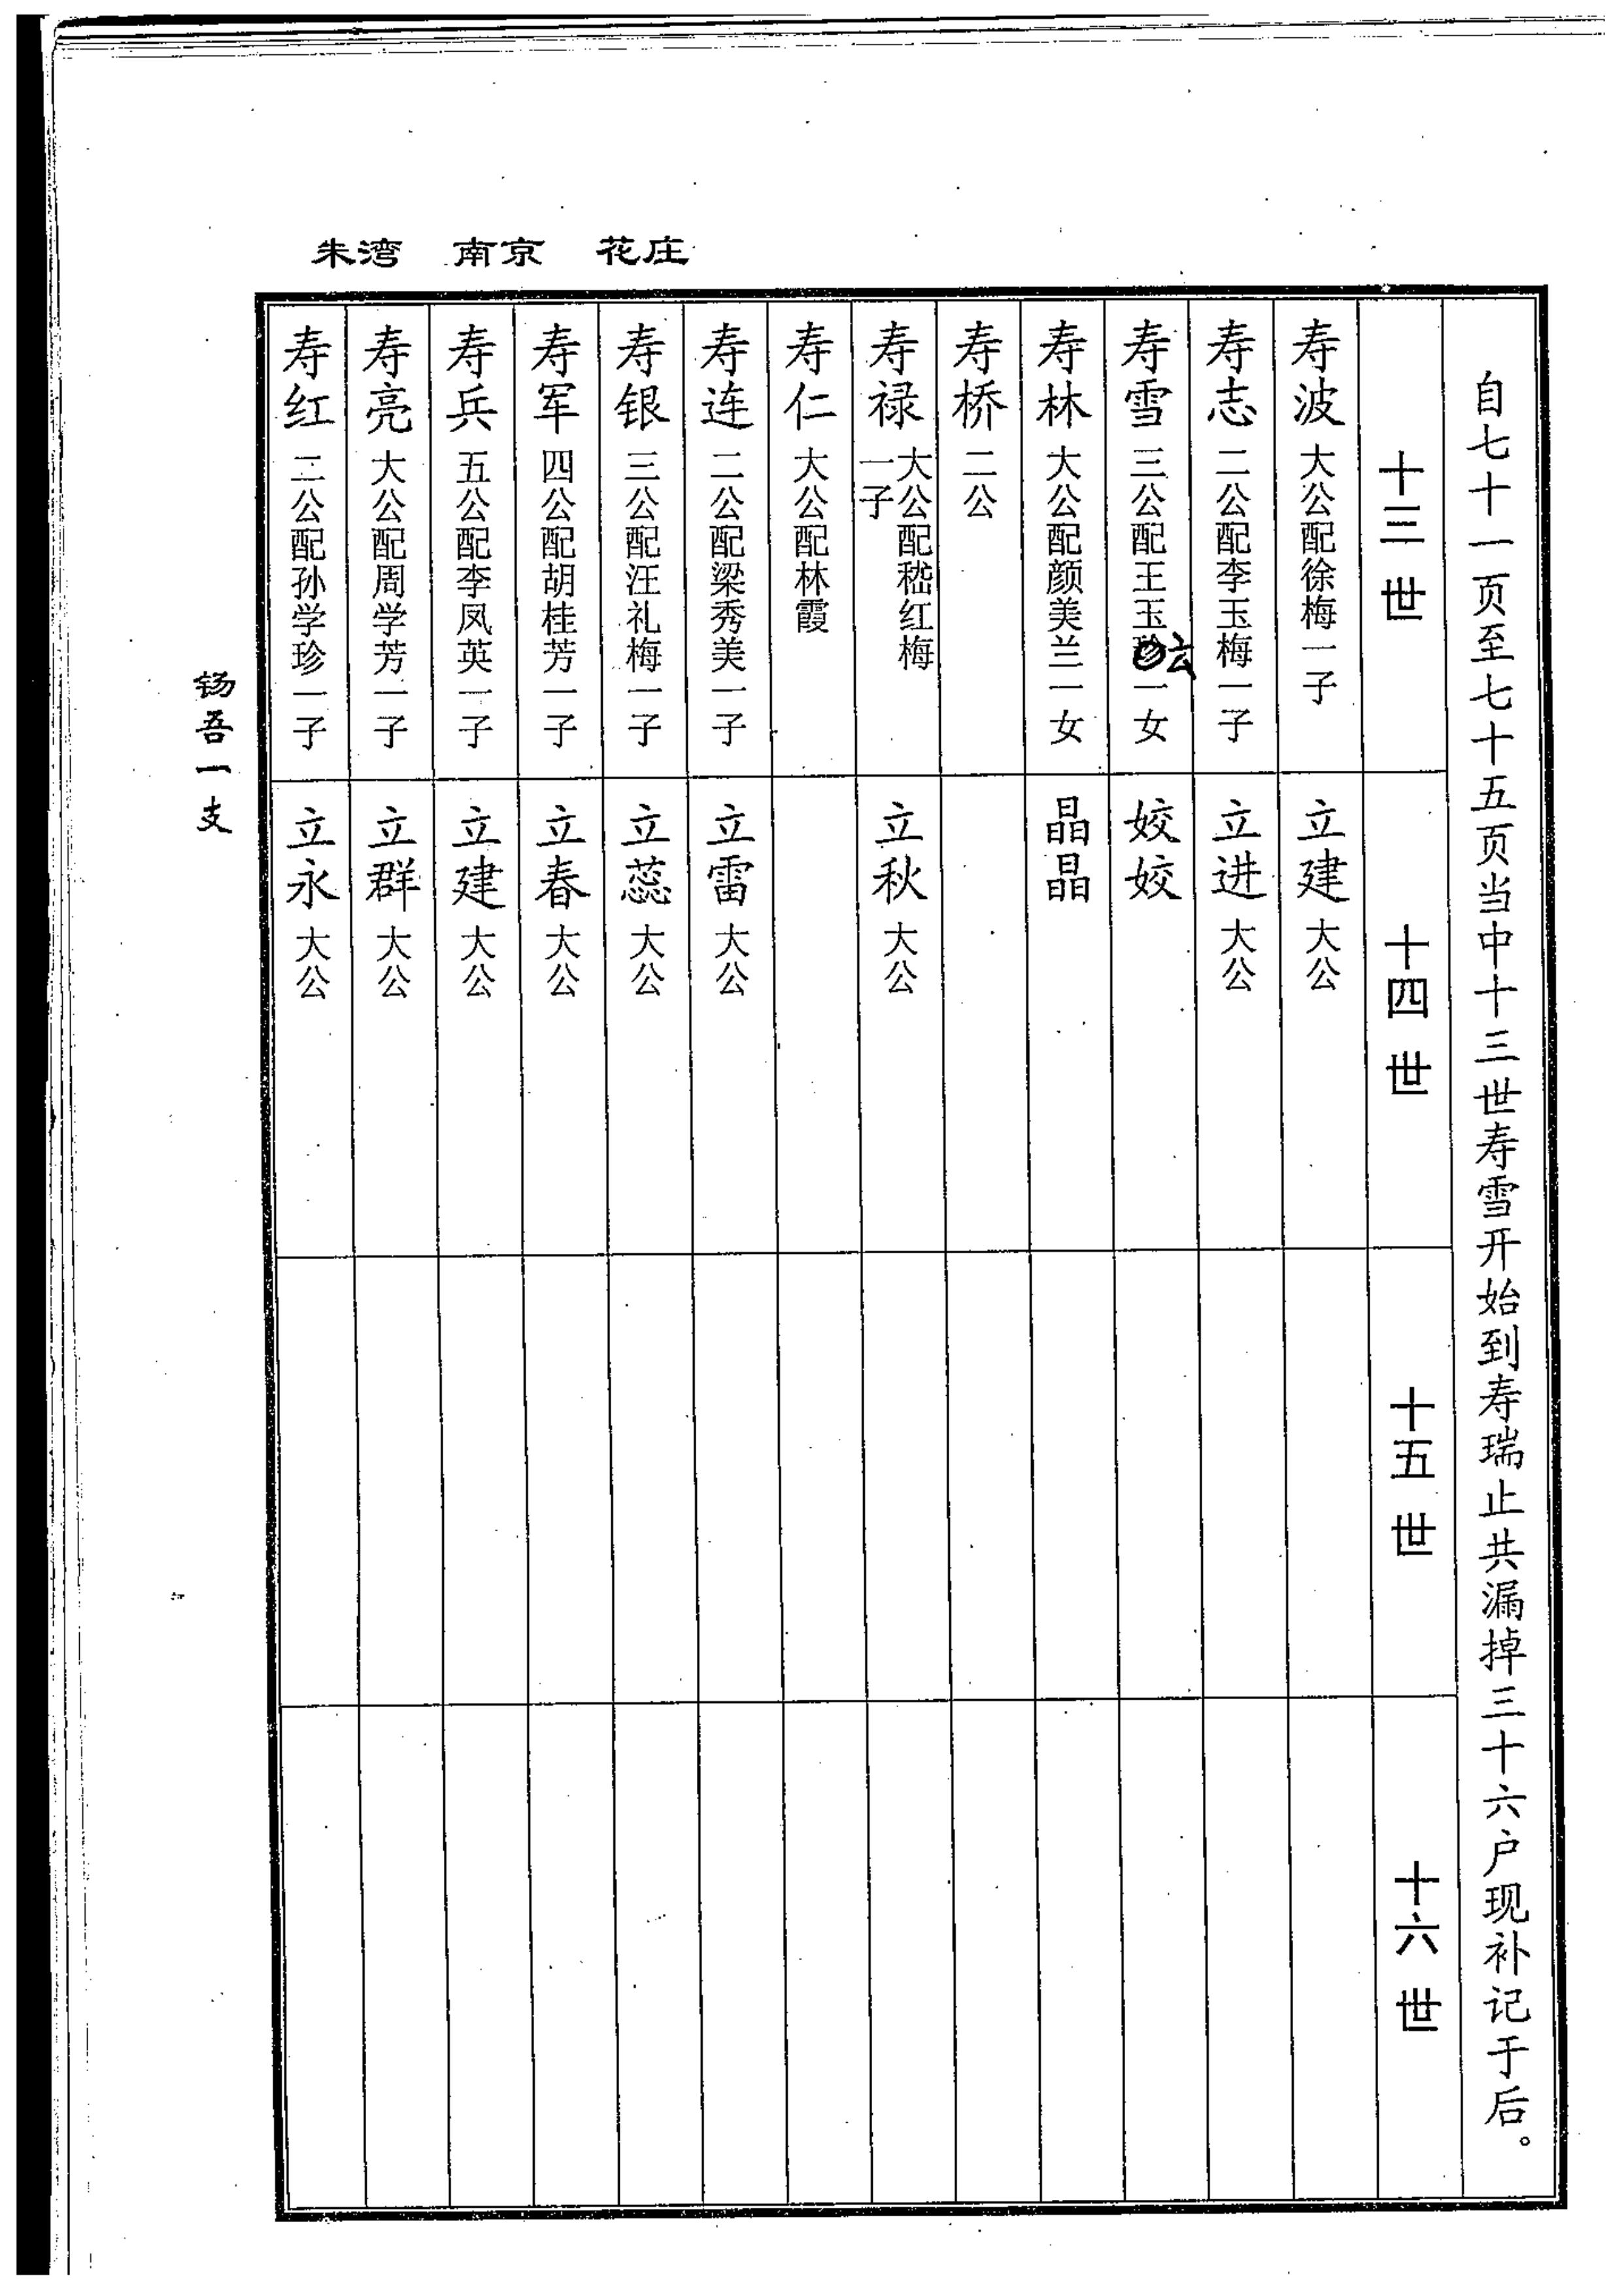 朱湾 南京 花庄
自七十一页至七十五页当中十三世寿雪开始到寿瑞止共漏掉三十六户现补记于后。
十三世
十四世
十五世
十六世
寿波 大公配徐梅一子
立建 大公
寿志 二公配李玉梅一子
立进 大公
寿雪 三公配王玉云一女
姣姣
寿林 大公配颜美兰一女
晶晶
寿桥 二公
寿禄 大公配嵇红梅
一子
立秋 大公
寿仁 大公配林霞
寿连 二公配梁秀美一子
立雷 大公
寿银 三公配汪礼梅一子
立蕊 大公
寿军 四公配胡桂芳一子
立春 大公
寿兵 五公配李凤英一子
立建 大公
寿亮 大公配周学芳一子
立群 大公
寿红 二公配孙学珍一子
立永 大公
钖吾一支